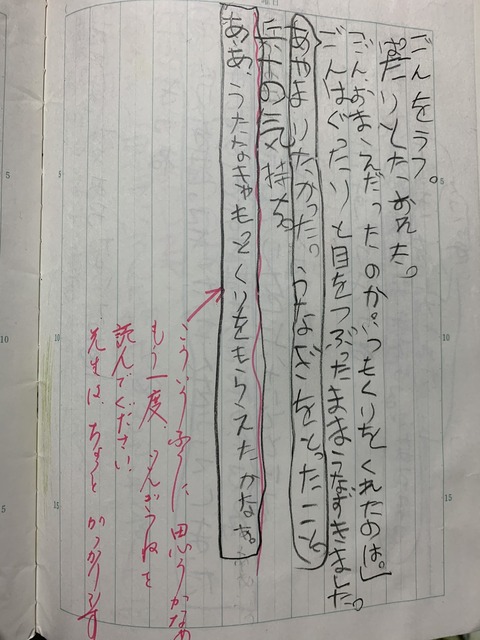 ごんをうつ。
ばたりとたおれた。
「ごん、おまえだったのか。いつもくりをくれたのは。」
ごんはぐったりと目をつぶったままうなずきました。
あやまりたかった。うなぎをとったこと。
兵十の気持ち。
ああ、うたなきゃもっとくりをもらえたかなぁ。
こういうふうに思うかなあ
もう一度 ごんぎつねを
読んでください
先生は、ちょっと がっかりです
5
10
15
5
10
15
5
10